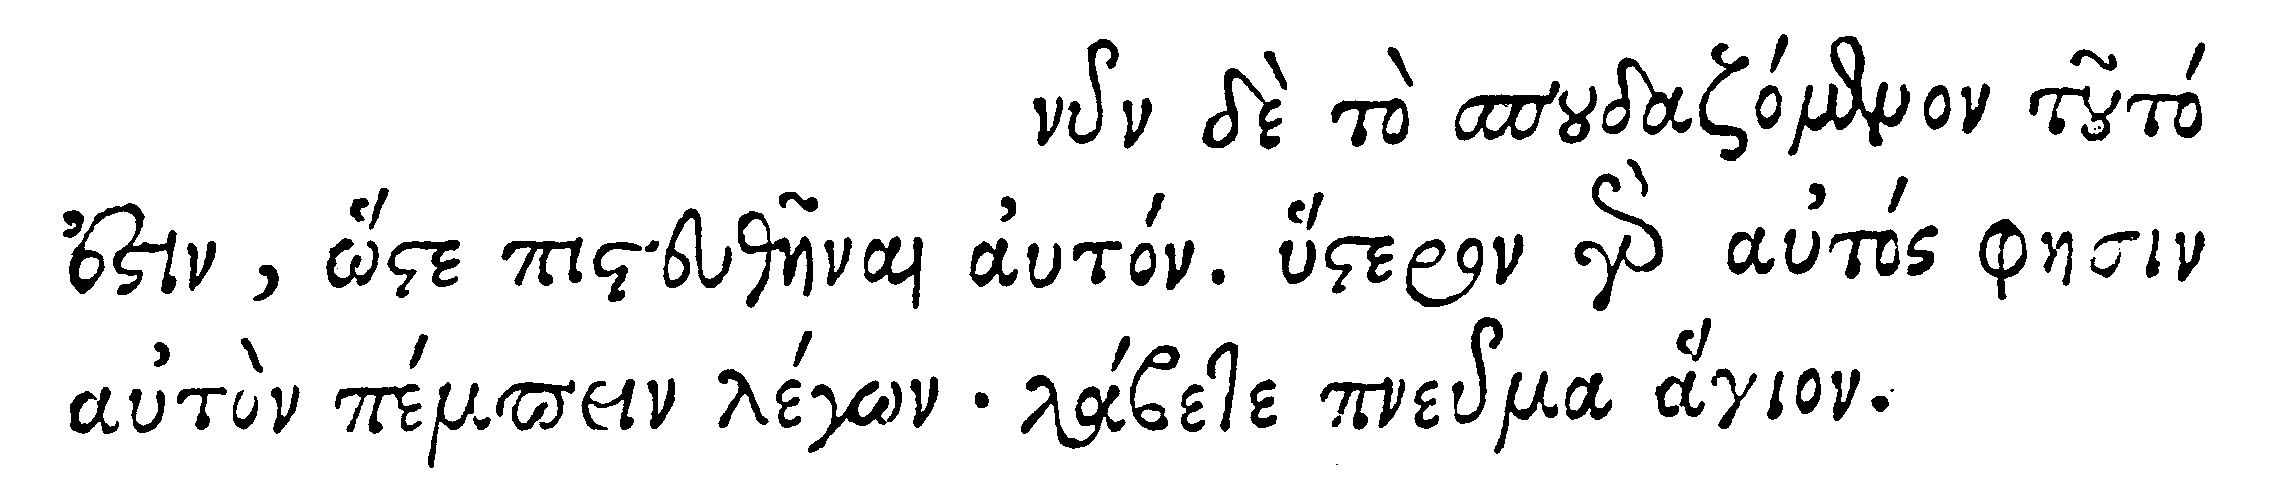 νῦν δὲ τὸ σπουδαζόμενον τοῦτό
ἐστιν, ὥστε πιστευθῆναι αὐτόν. ὕστερον γὰρ αὐτός φησιν
αὐτὸν πέμπειν λέγων · λάβετε πνεῦμα ἅγιον.